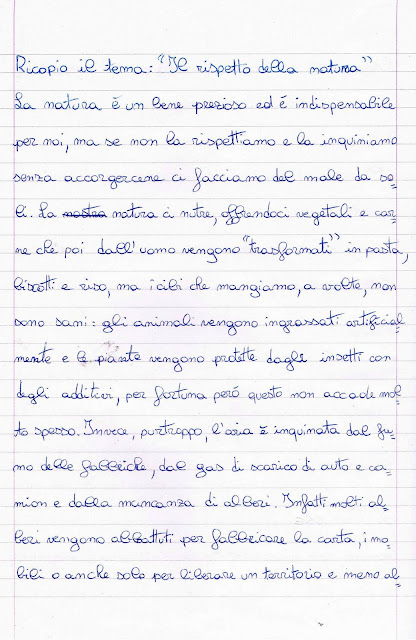 Ricopio il tema: "Il rispetto della natura"
La natura è un bene prezioso ed é indispensabile
per noi, ma se non la rispettiamo e la inquiniamo
senza accorgercene ci facciamo del male da so=
li. La nostra natura ci nutre, offrendoci vegetali e car=
ne che poi dall'uomo vengono "trasformati" in pasta,
biscotti e riso, ma i cibi che mangiamo, a volte, non
sono sani: gli animali vengono ingrassati artificial=
mente e le piante vengono protette dagli insetti con
degli additivi, per fortuna peró questo non accade mol=
to spesso. Invece, purtroppo, l'aria è inquinata dal fu=
mo delle fabbriche, dal gas di scarico di auto e ca=
mion e dalla mancanza di alberi. Infatti molti al=
beri vengono abbattuti per fabbricare la carta, i mo=
bili o anche solo per liberare un territorio e meno al=